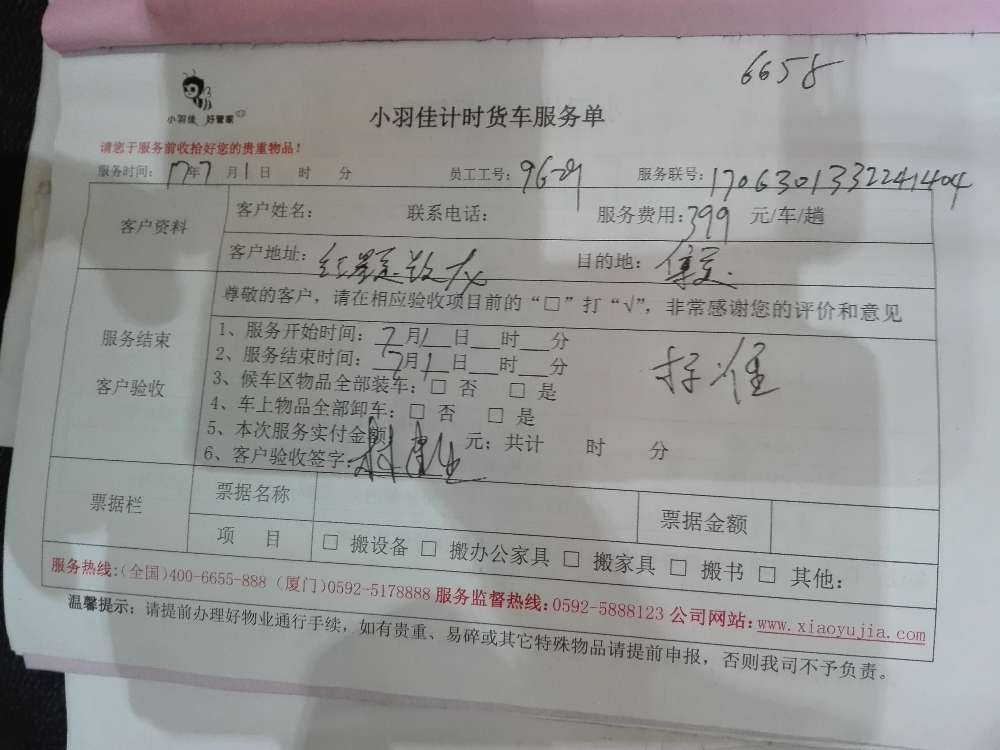 6658
小羽佳 好管家
小羽佳计时货车服务单
请您于服务前收拾好您的贵重物品！
服务时间：17年7月1日 时 分 员工工号：96 服务联号：17063013322241404
客户资料
客户姓名： 联系电话： 服务费用：399 元/车/趟
客户地址： 目的地：集美
服务结束
客户验收
尊敬的客户，请在相应验收项目前的“□”打“√”，非常感谢您的评价和意见
1、服务开始时间：7月1日 时 分
2、服务结束时间：7月1日 时 分
3、候车区物品全部装车：□ 否 □ 是
4、车上物品全部卸车：□ 否 □ 是
5、本次服务实付金额 元；共计 时 分
6、客户验收签字：
标准
票据栏
票据名称 票据金额
项 目 □ 搬设备 □ 搬办公家具 □ 搬家具 □ 搬书 □ 其他：
服务热线：(全国)400-6655-888 (厦门)0592-5178888 服务监督热线：0592-5888123 公司网站：www.xiaoyujia.com
温馨提示：请提前办理好物业通行手续，如有贵重、易碎或其它特殊物品请提前申报，否则我司不予负责。